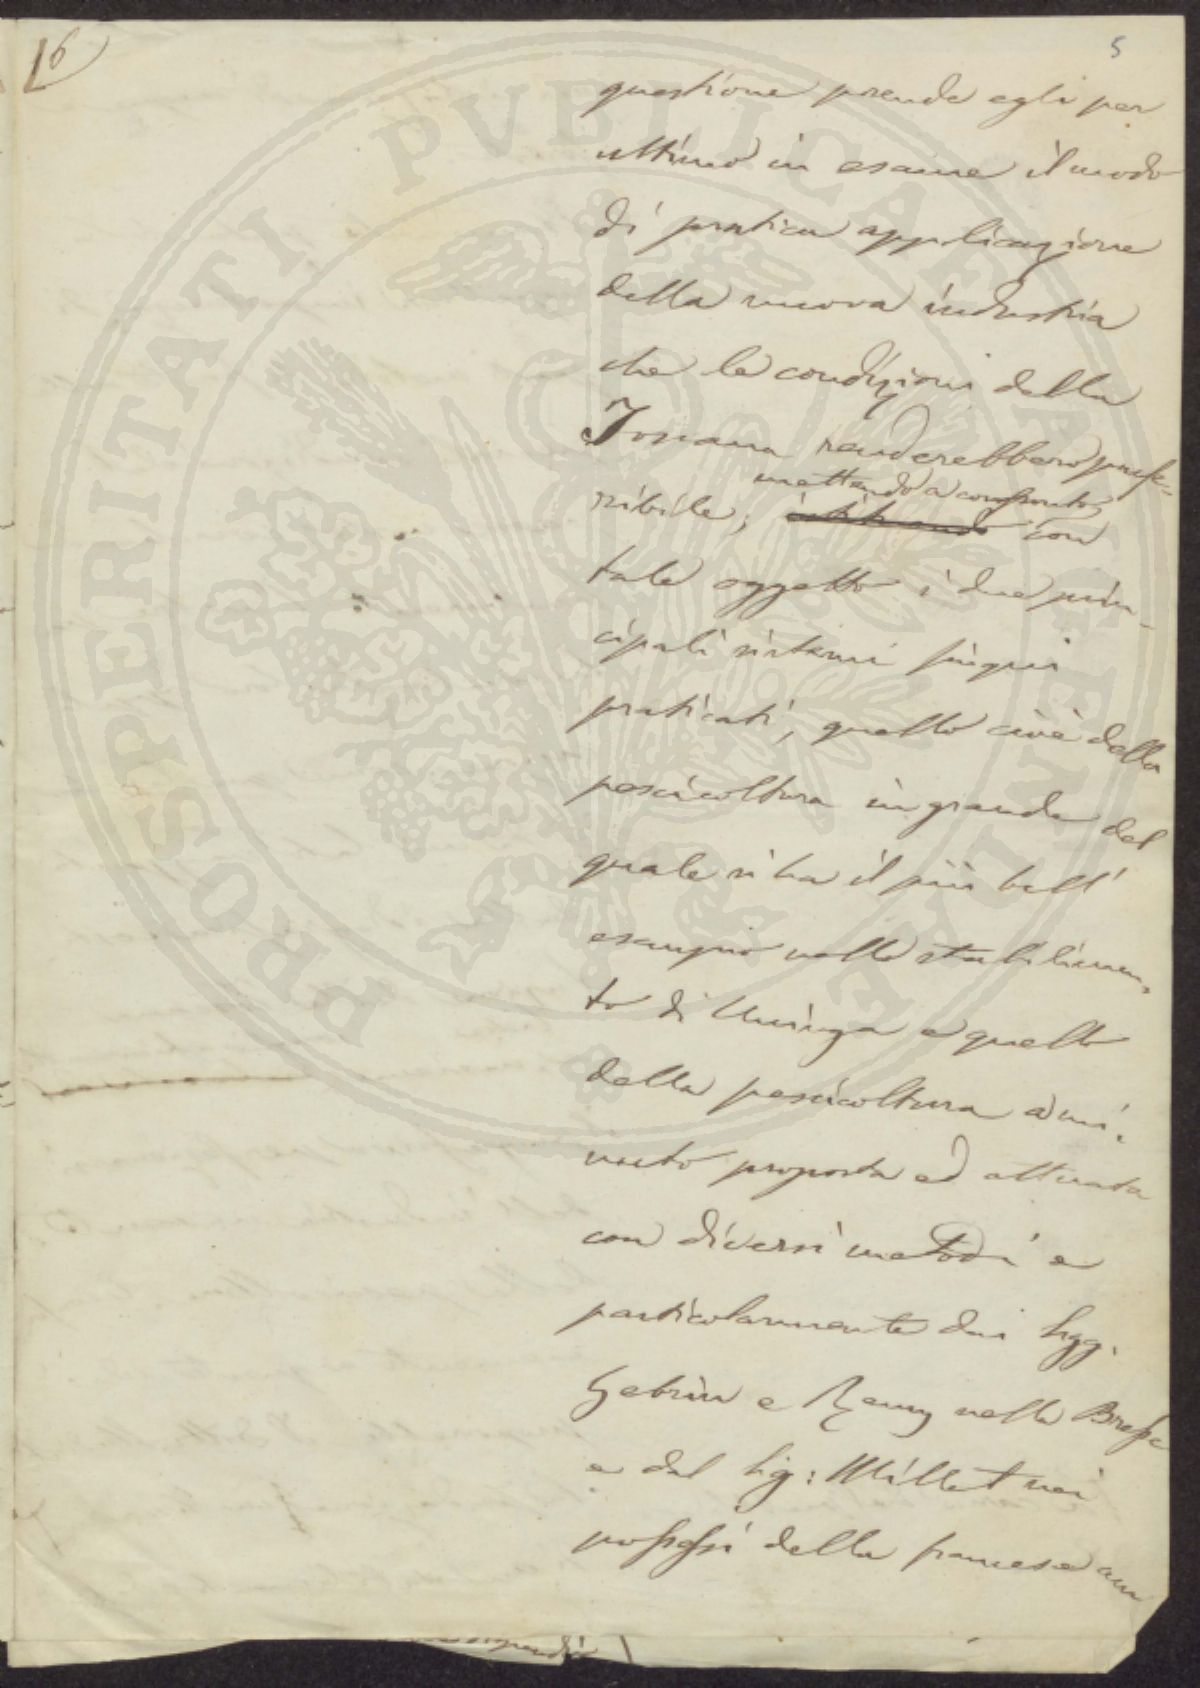 16
5
questione prende egli per
ultimo in esame il modo
di pratica applicazione
della nuova industria
che le condizioni della
Toscana renderebbero prefe-
mettendo a confronto
ribile; con
tale oggetto i due prin-
cipali sistemi finqui
praticati, quello cioè della
pescicoltura in grande del
quale si ha il più bell'
esempio nello stabilimen-
to di Uninga e quello
della pescicoltura a mi-
nuto proposta ed attuata
con diversi metodi e
particolarmente dai Sigg.
Gehin e Remy nella Bresse
e dal Sig: Millet nei
possessi della francese am
PROSPERITATI PVBLICAE AVGENDAE